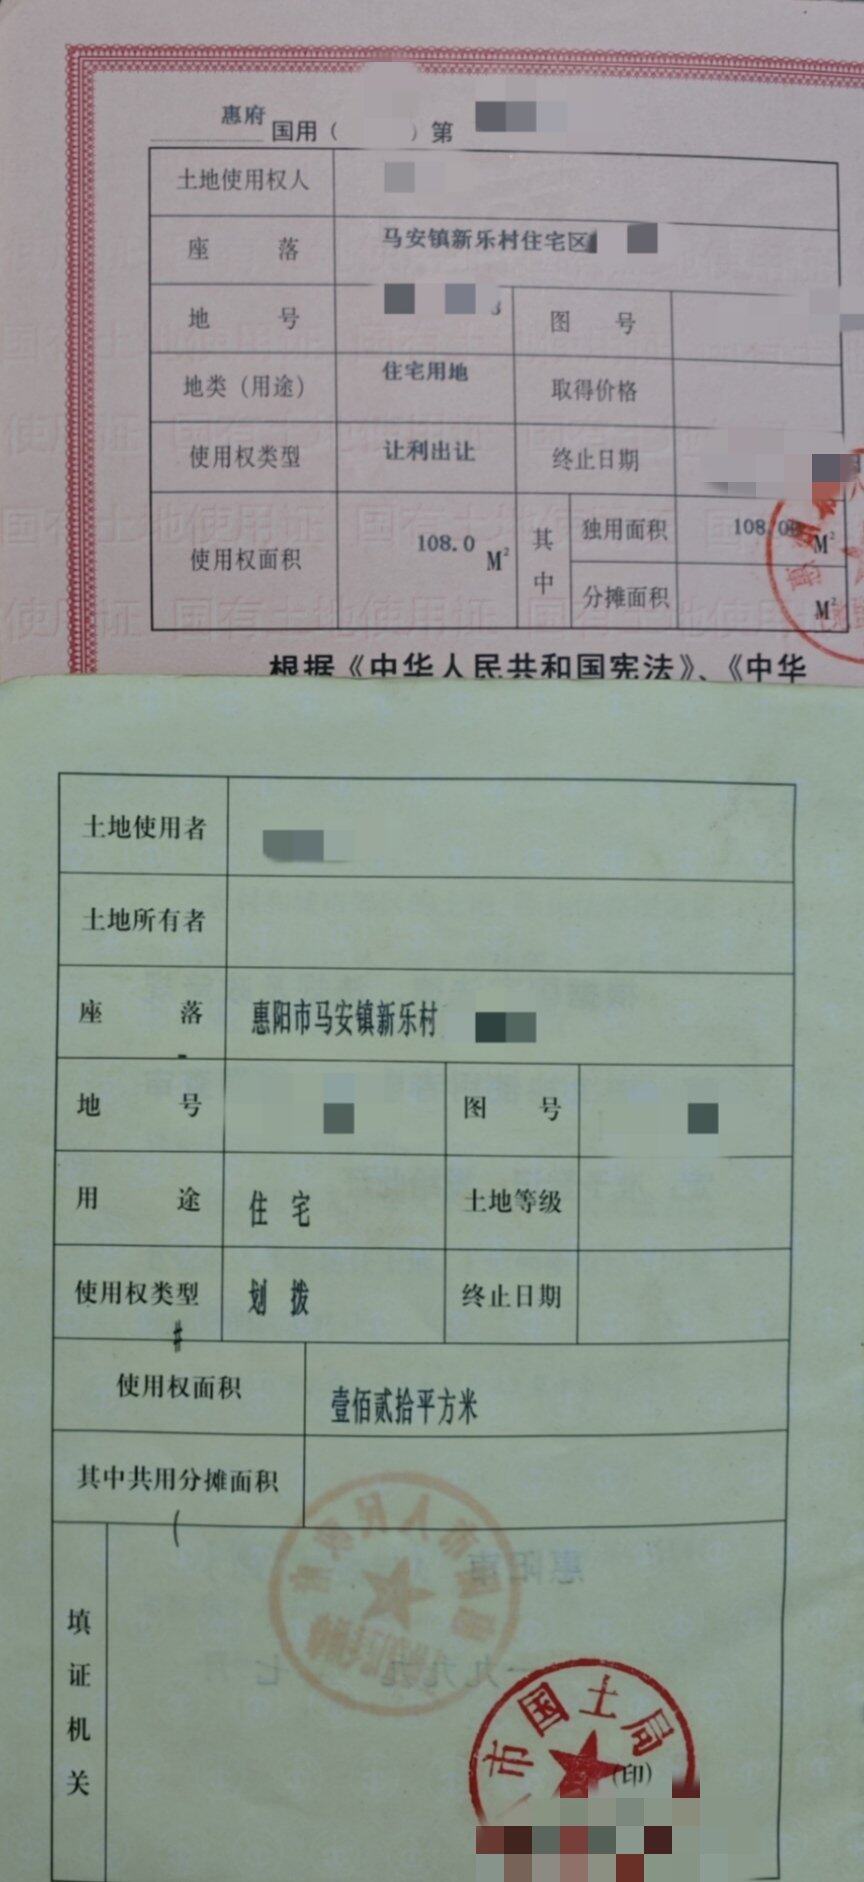 惠府 国用（ ）第
土地使用权人
座 落 马安镇新乐村住宅区
地 号 图 号
地类（用途） 住宅用地 取得价格
使用权类型 让利出让 终止日期
使用权面积 108.0 M² 其中 独用面积 108.00 M²
分摊面积 M²
根据《中华人民共和国宪法》、《中华
土地使用者
土地所有者
座 落 惠阳市马安镇新乐村
地 号 图 号
用 途 住 宅 土地等级
使用权类型 划 拨 终止日期
使用权面积 壹佰贰拾平方米
其中共用分摊面积
填证机关
市国土局
(印)